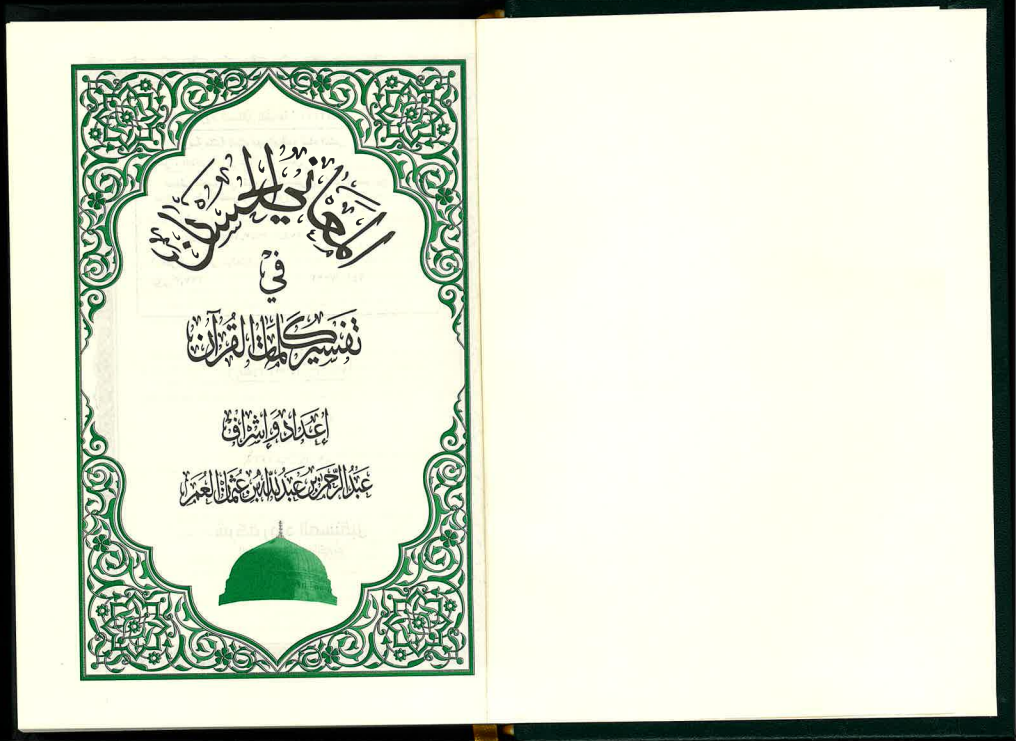 المعاني الحسان
في
تفسير كلمات القرآن
إعداد وإشراف
عبد الرحمن بن عبد الله بن عثمان العمر